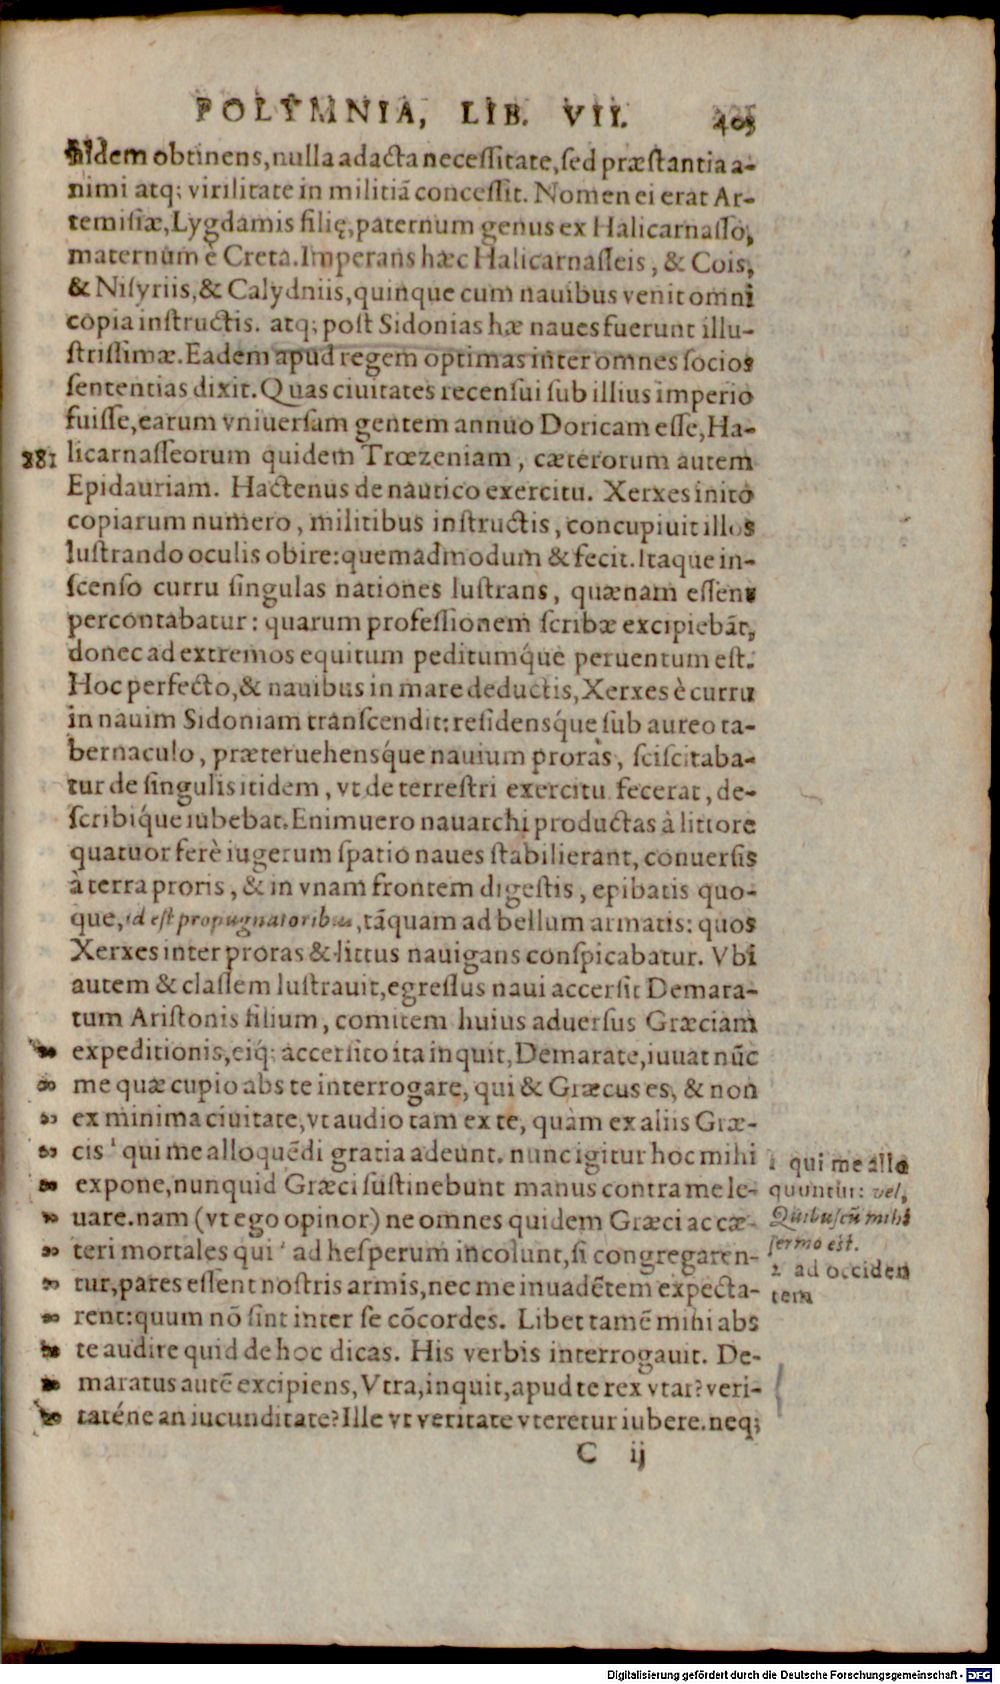 POLYMNIA, LIB. VII. 405
itidem obtinens, nulla adacta necessitate, sed præstantia a-
nimi atq; virilitate in militiã concessit. Nomen ei erat Ar-
temisiæ, Lygdamis filię, paternum genus ex Halicarnasso,
maternum è Creta. Imperans hæc Halicarnasseis, & Cois,
& Nisyriis, & Calydniis, quinque cum nauibus venit omni
copia instructis. atq; post Sidonias hæ naues fuerunt illu-
strissimæ. Eadem apud regem optimas inter omnes socios
sententias dixit. Quas ciuitates recensui sub illius imperio
fuisse, earum vniuersam gentem annuo Doricam esse, Ha-
881 licarnasseorum quidem Trœzeniam, cæterorum autem
Epidauriam. Hactenus de nautico exercitu. Xerxes inito
copiarum numero, militibus instructis, concupiuit illos
lustrando oculis obire: quemadmodum & fecit. Itaque in-
scenso curru singulas nationes lustrans, quænam essent
percontabatur: quarum professionem scribæ excipiebãt,
donec ad extremos equitum peditumq́ue peruentum est.
Hoc perfecto, & nauibus in mare deductis, Xerxes è curru
in nauim Sidoniam transcendit: residensq́ue sub aureo ta-
bernaculo, præteruehensq́ue nauium proras, sciscitaba-
tur de singulis itidem, vt de terrestri exercitu fecerat, de-
scribíque iubebat. Enimuero nauarchi productas à littore
quatuor ferè iugerum spatio naues stabilierant, conuersis
à terra proris, & in vnam frontem digestis, epibatis quo-
que, id est propugnatoribus, tãquam ad bellum armatis: quos
Xerxes inter proras & littus nauigans conspicabatur. Vbi
autem & classem lustrauit, egressus naui accersit Demara-
tum Aristonis filium, comitem huius aduersus Græciam
„ expeditionis, eiq; accersito ita inquit, Demarate, iuuat nũc
„ me quæ cupio abs te interrogare, qui & Græcus es, & non
„ ex minima ciuitate, vt audio tam ex te, quàm ex aliis Græ-
„ cis ¹ qui me alloquẽdi gratia adeunt. nunc igitur hoc mihi
„ expone, nunquid Græci sustinebunt manus contra me le-
„ uare. nam (vt ego opinor) ne omnes quidem Græci ac cæ-
„ teri mortales qui ² ad hesperum incolunt, si congregaren-
„ tur, pares essent nostris armis, nec me inuadẽtem expecta-
„ rent: quum nõ sint inter se cõcordes. Libet tamẽ mihi abs
„ te audire quid de hoc dicas. His verbis interrogauit. De-
„ maratus autẽ excipiens, Vtra, inquit, apud te rex vtar? veri-
„ taténe an iucunditate? Ille vt veritate vteretur iubere. neq;
C ij
1 qui me allo
quuntur: vel,
Quibuscũ mihi
sermo est.
2 ad occiden
tem
Digitalisierung gefördert durch die Deutsche Forschungsgemeinschaft - DFG